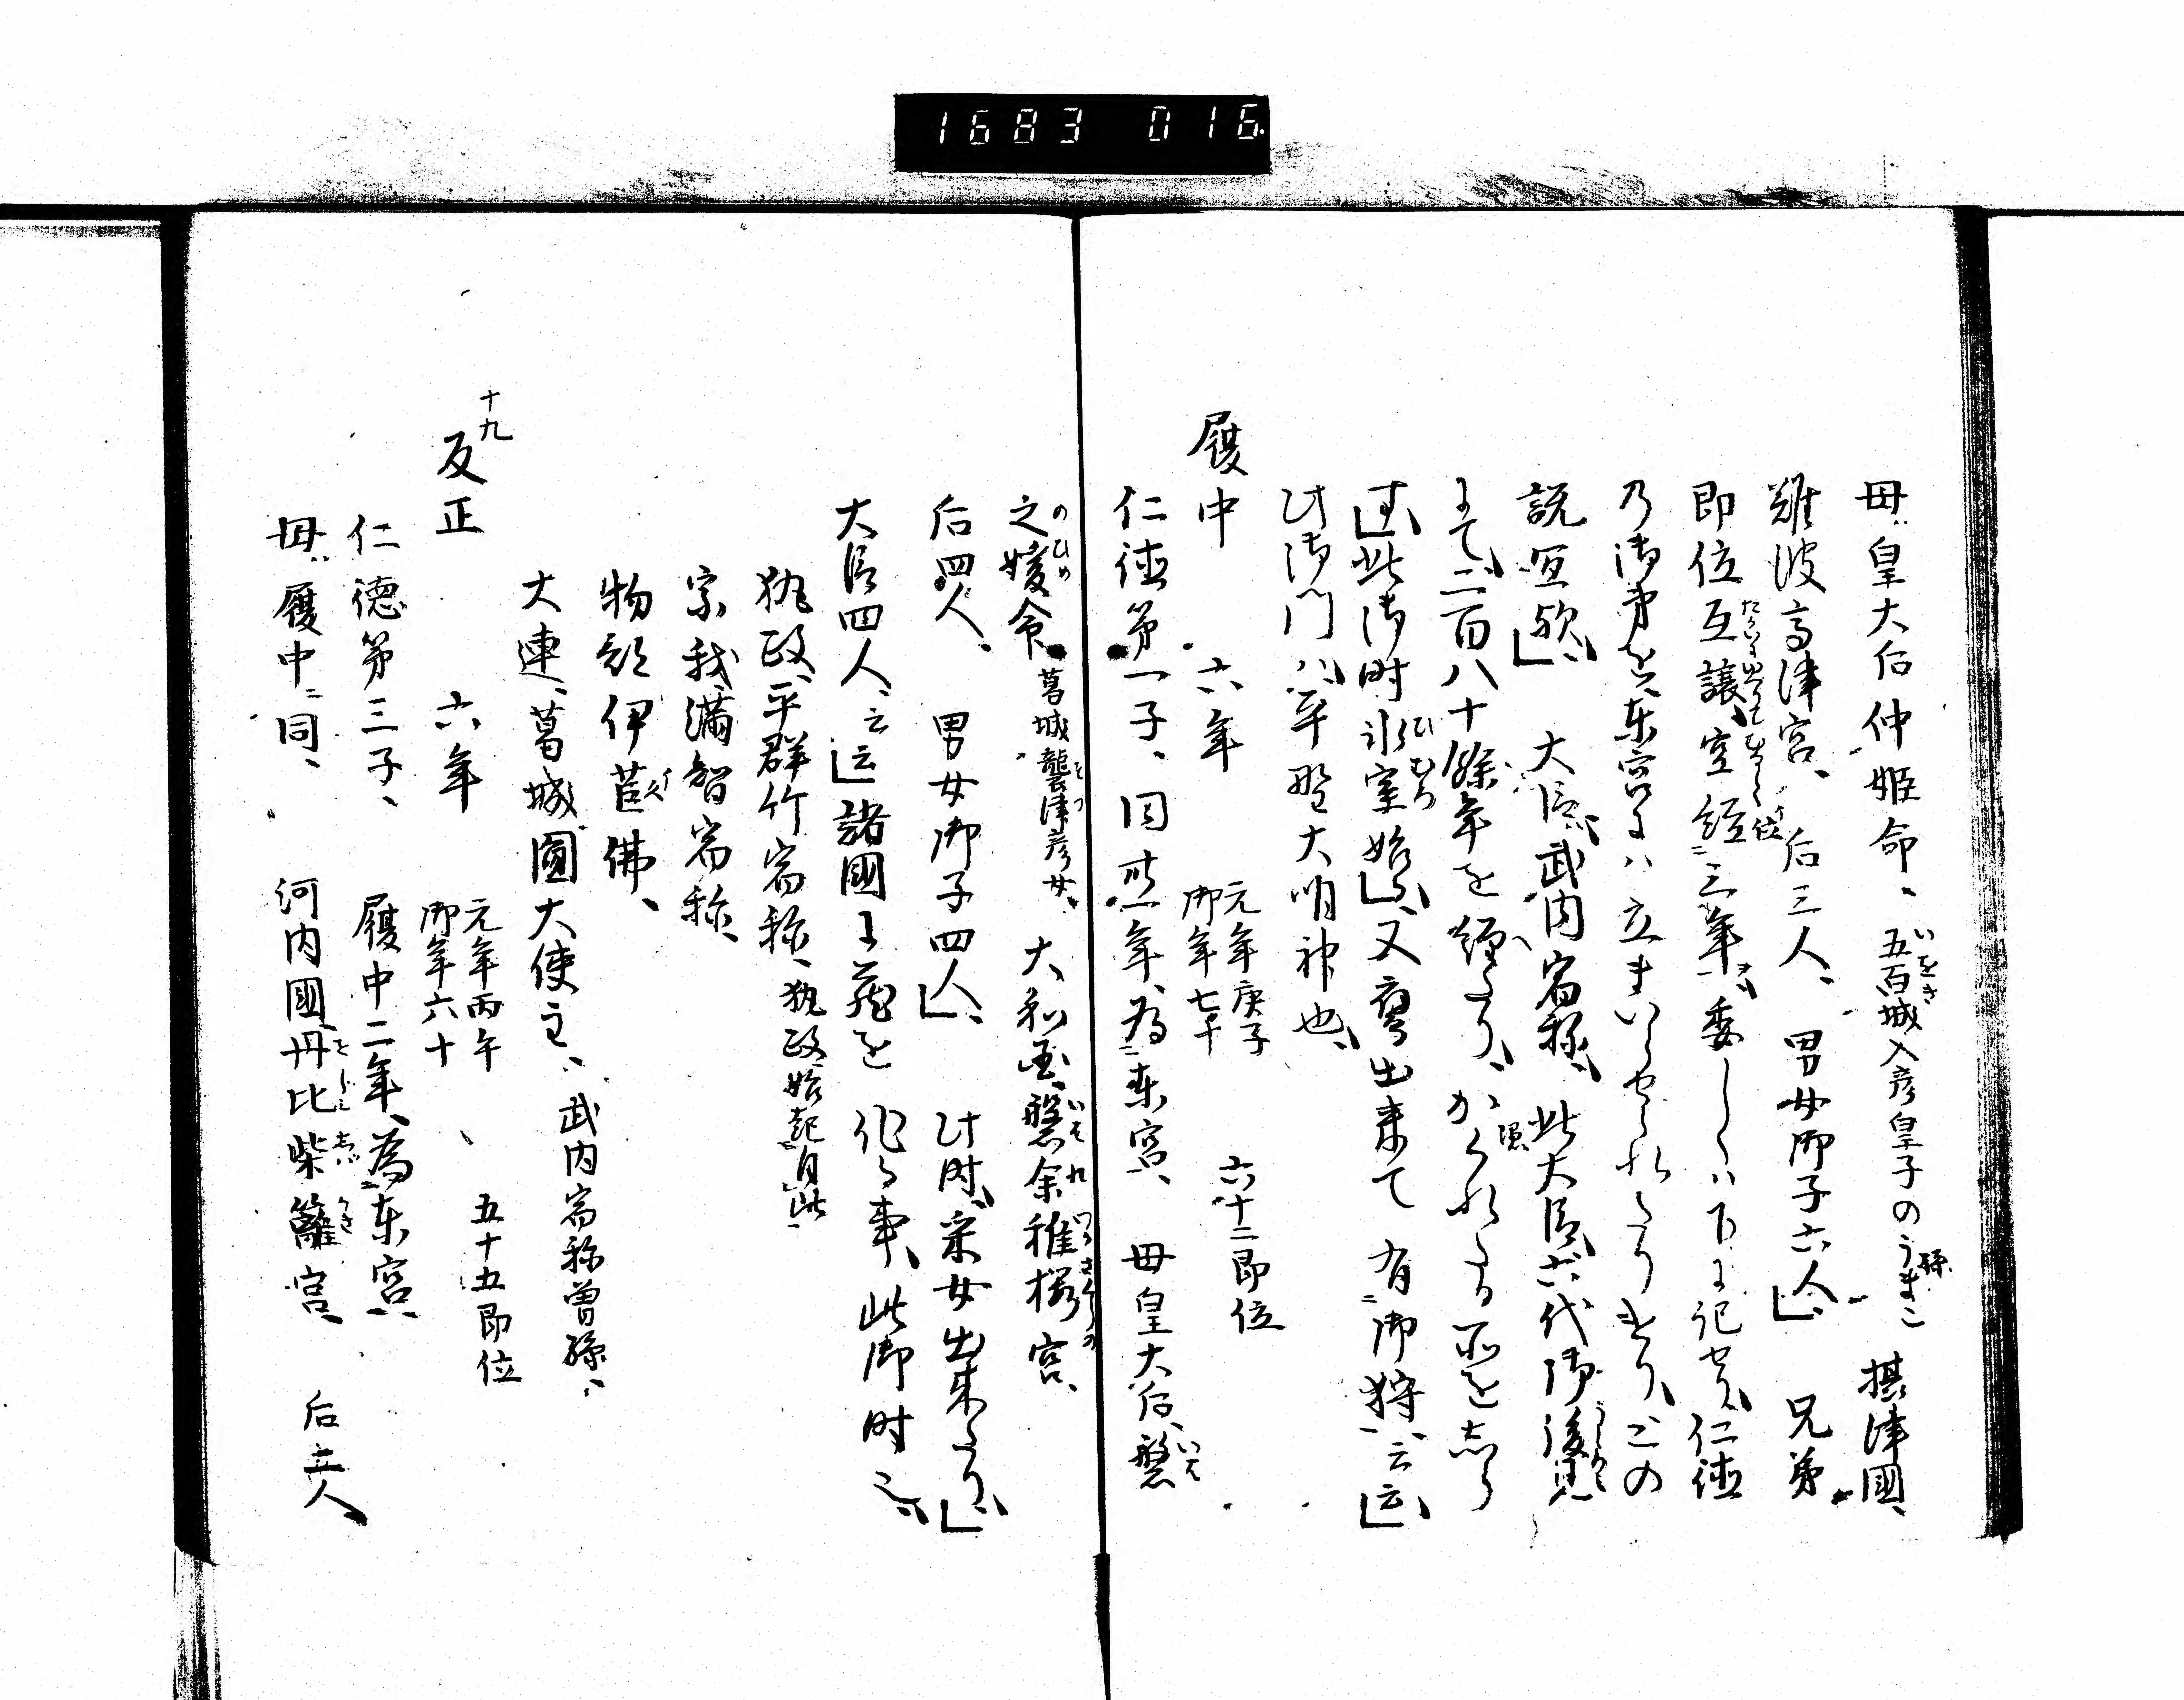 1683 016
母皇大后仲姫命、五百城入彦皇子のうまこ 摂津國、
難波高津宮、后三人、男女御子六人」、兄弟
即位互譲、空経三年、委しくハ下に記せり、仁徳
乃御弟を東宮にハ立まいらせられたりけり、この
説宜歟」、大臣武内宿祢、此大臣六代御後見
にて、二百八十餘年を経たり、かくれたる所を志ら
す」、此御時氷室始」、又鷹出来て有御狩云云」
此御門ハ平野大明神也、
履中 六年 元年庚子 御年七十 六十二即位
仁徳第一子、同卅一年、為東宮、母皇大后、磐
之媛命、葛城襲津彦女、大和國、磐余稚桜宮、
后四人、男女御子四人」、此時、采女出来たり」
大臣四人、云云」諸國に蔵を作る事、此御時也、
執政、平群竹宿祢、執政始起自此、
宗我満智宿祢、
物部伊莒佛、
大連、葛城圓大使主、武内宿祢曽孫、
十九
反正 六年 元年丙午 御年六十 五十五即位
仁徳第三子、履中二年、為東宮、
母履中同、河内國丹比柴籬宮、后五人、